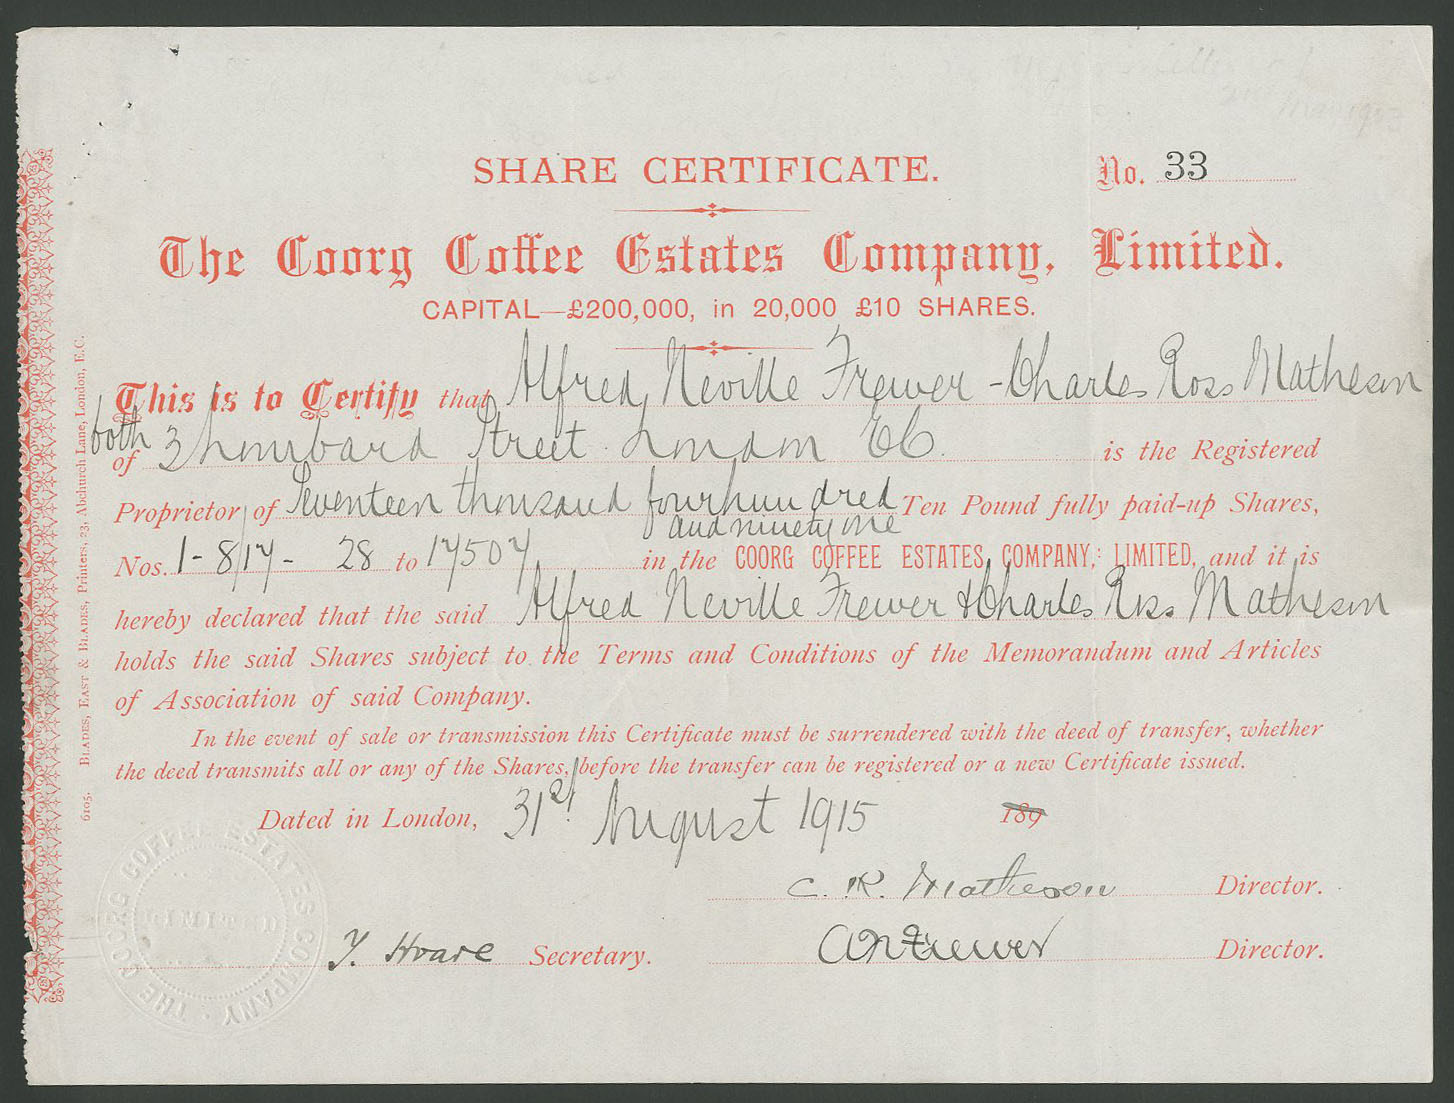 May 1903
SHARE CERTIFICATE.
No. 33
The Coorg Coffee Estates Company, Limited.
CAPITAL—£200,000, in 20,000 £10 SHARES.
This is to Certify that Alfred Neville Frewer - Charles Ross Matheson
both
of 3 Lombard Street London EC. is the Registered
Proprietor of Seventeen thousand four hundred Ten Pound fully paid-up Shares,
and ninety one
Nos. 1-8/17- 28 to 17507 in the COORG COFFEE ESTATES COMPANY, LIMITED, and it is
hereby declared that the said Alfred Neville Frewer & Charles Ross Matheson
holds the said Shares subject to the Terms and Conditions of the Memorandum and Articles
of Association of said Company.
In the event of sale or transmission this Certificate must be surrendered with the deed of transfer, whether
the deed transmits all or any of the Shares, before the transfer can be registered or a new Certificate issued.
Dated in London, 31st August 1915 189
C. R. Matheson Director.
T. Hoare Secretary.
A N Frewer Director.
THE COORG COFFEE ESTATES COMPANY
LIMITED
6105. BLADES, EAST & BLADES, Printers, 23, Abchurch Lane, London, E.C.